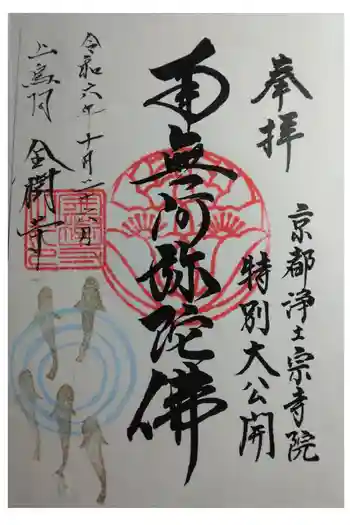 奉拝
京都浄土宗寺院
特別大公開
南無阿弥陀佛
令和六年十月二十八日
上鳥羽 全開寺